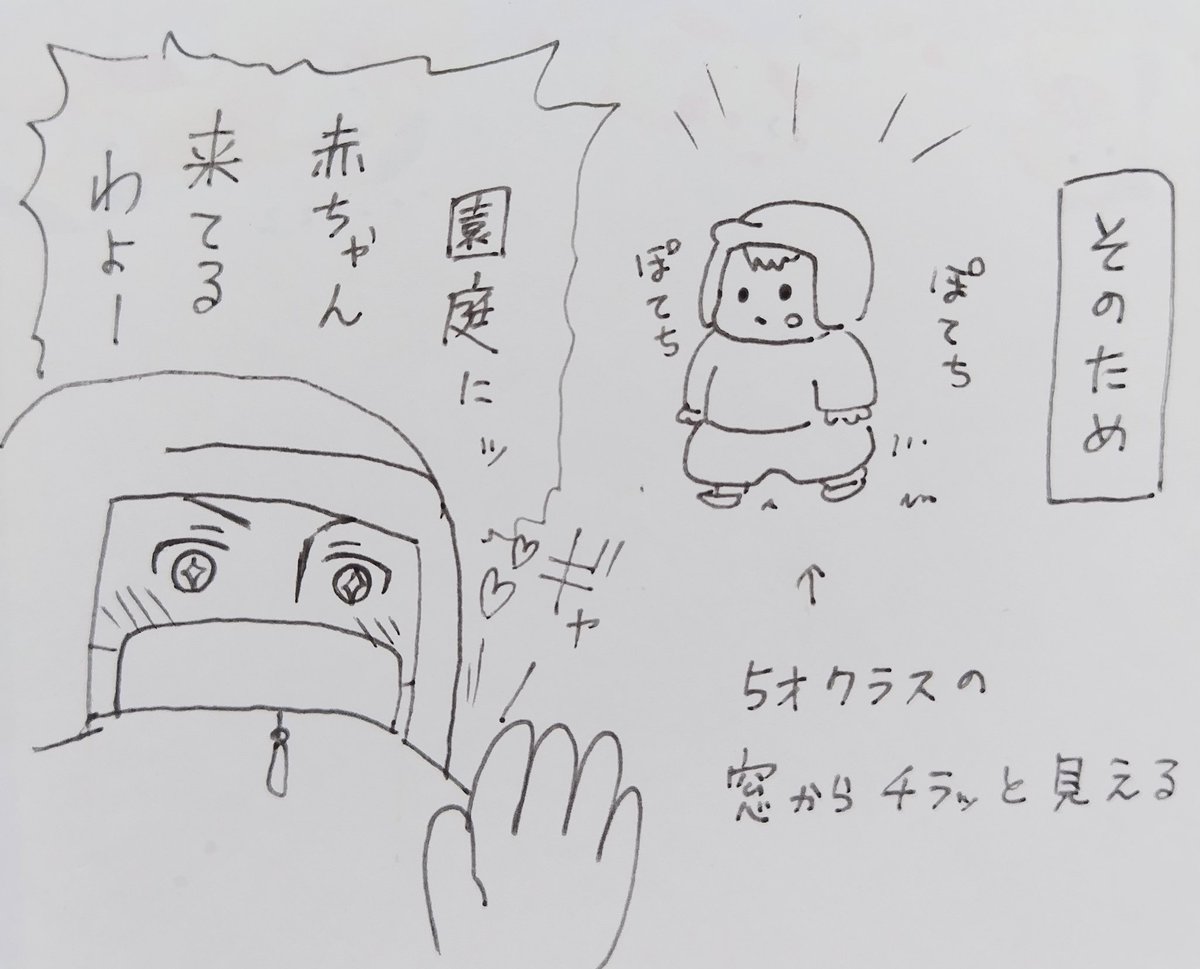 そのため
ぽてち
ぽてち
↑
5才クラスの
窓からチラッと見える
園庭にッ
赤ちゃん
来てる
わよー
♡♡ギャ